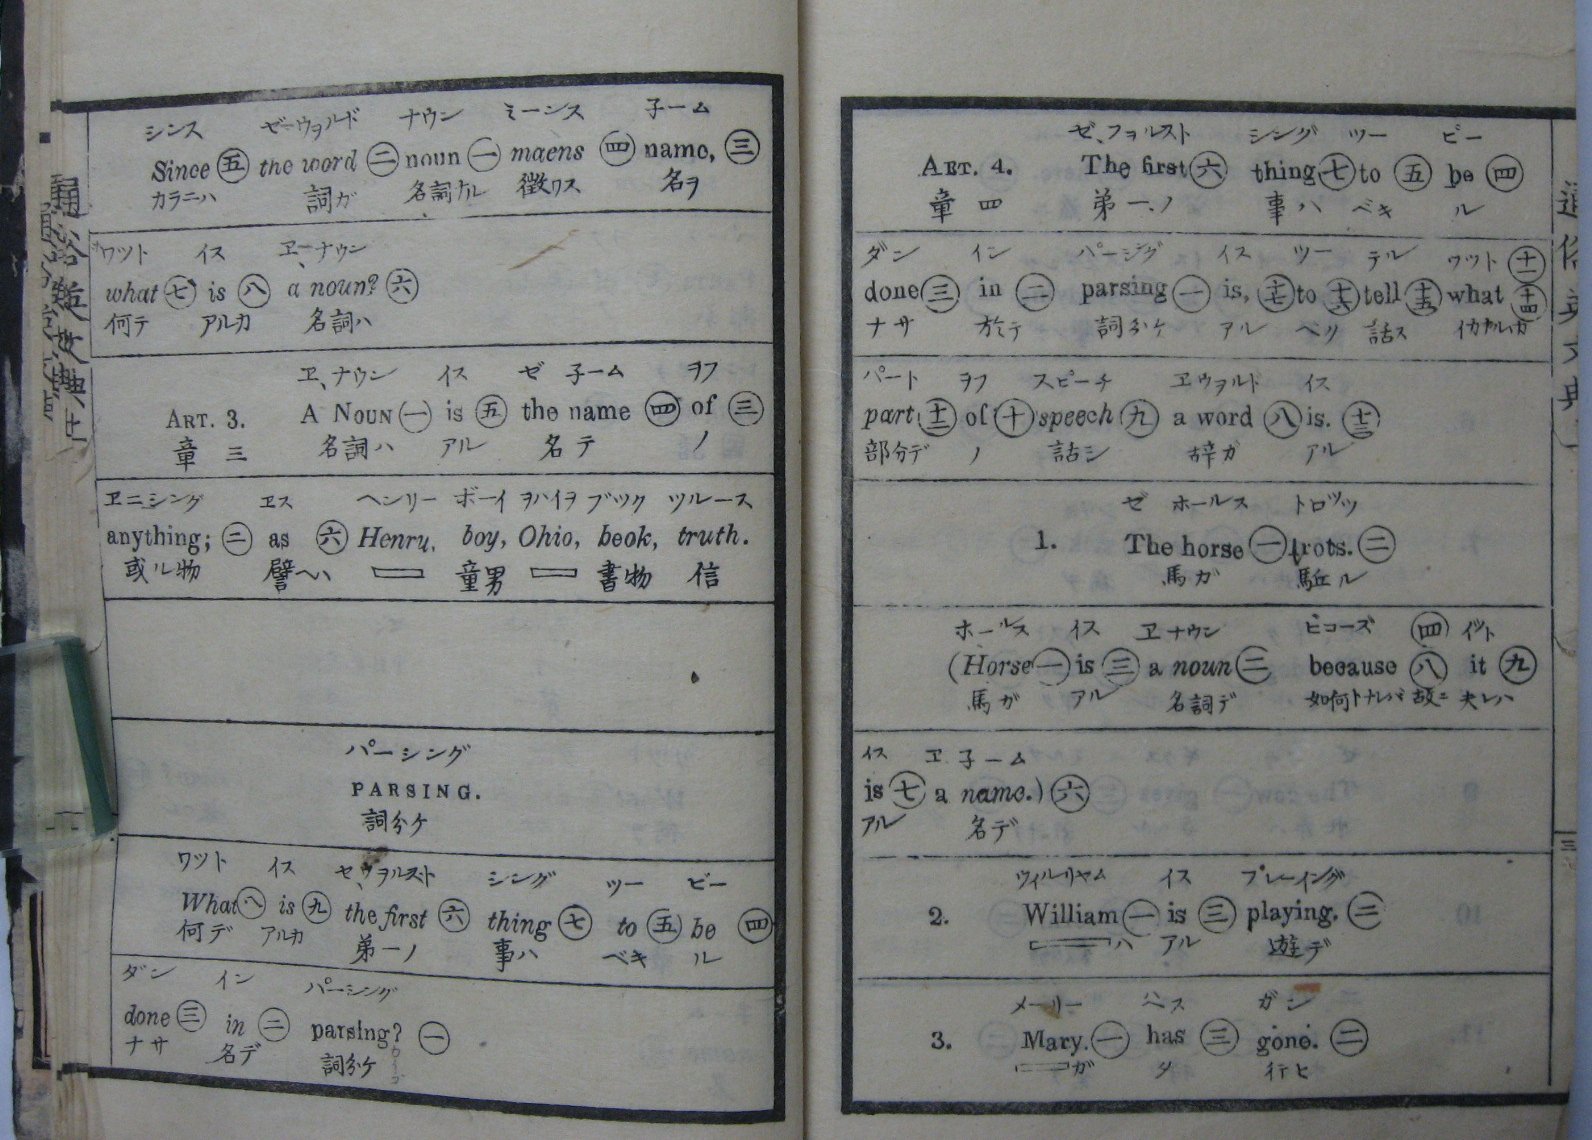 シンス ゼーウヲルド ナウン ミーンス 子ーム
Since ㊄ the word ㊁ noun ㊀ maens ㊃ name, ㊂
カラニハ 詞ガ 名詞ナル 徴ワス 名ヲ
ワツト イス ヱーナウン
what ㊆ is ㊇ a noun? ㊅
何テ アルカ 名詞ハ
ヱ、ナウン イス ゼ 子ーム ヲフ
ART. 3. A NOUN ㊀ is ㊄ the name ㊃ of ㊂
章 三 名詞ハ アル 名テ ノ
ヱニシング ヱス ヘンリー ボーイ ヲハイヲ ブツク ツルース
anything; ㊁ as ㊅ Henru, boy, Ohio, beok, truth.
或ル物 譬ヘハ 童男 書物 信
パーシング
PARSING.
詞分ケ
ワツト イス ゼ、ヲルスト シング ツー ビー
What ㊇ is ㊈ the first ㊅ thing ㊆ to ㊄ be ㊃
何デ アルカ 第一ノ 事ハ ベキ ル
ダン イン パーシング
done ㊂ in ㊁ parsing? ㊀
ナサ 名デ 詞分ケ
ゼ、フヲルスト シング ツー ビー
ART. 4. The first ㊅ thing ㊆ to ㊄ be ㊃
章 四 第一、ノ 事ハ ベキ ル
ダン イン パージグ イス ツー テル ワツト 十一
done ㊂ in ㊁ parsing ㊀ is, 十七 to 十六 tell 十五 what 十四
ナサ 於テ 詞分ケ アル ベク 話ス イカナルカ
パート ヲフ スピーチ ヱウヲルド イス
part 十二 of ㊉ speech ㊈ a word ㊇ is. 十三
部分デ ノ 話シ 辞ガ アル
ゼ ホールス トロツツ
1. The horse ㊀ trots. ㊁
馬ガ 駈ル
ホールス イス ヱ ナウン ビコーズ ㊃ イツト
(Horse ㊀ is ㊂ a noun ㊁ because ㊇ it ㊈
馬ガ アル 名詞デ 如何トナレバ 故ニ 夫レハ
イス ヱ 子ーム
is ㊆ a name.) ㊅
アル 名デ
ウィルリヤム イス プレーイング
2. William ㊀ is ㊂ playing. ㊁
ハ アル 遊デ
メーリー ハス ガン
3. Mary. ㊀ has ㊂ gone. ㊁
ガ タ 行ヒ
三